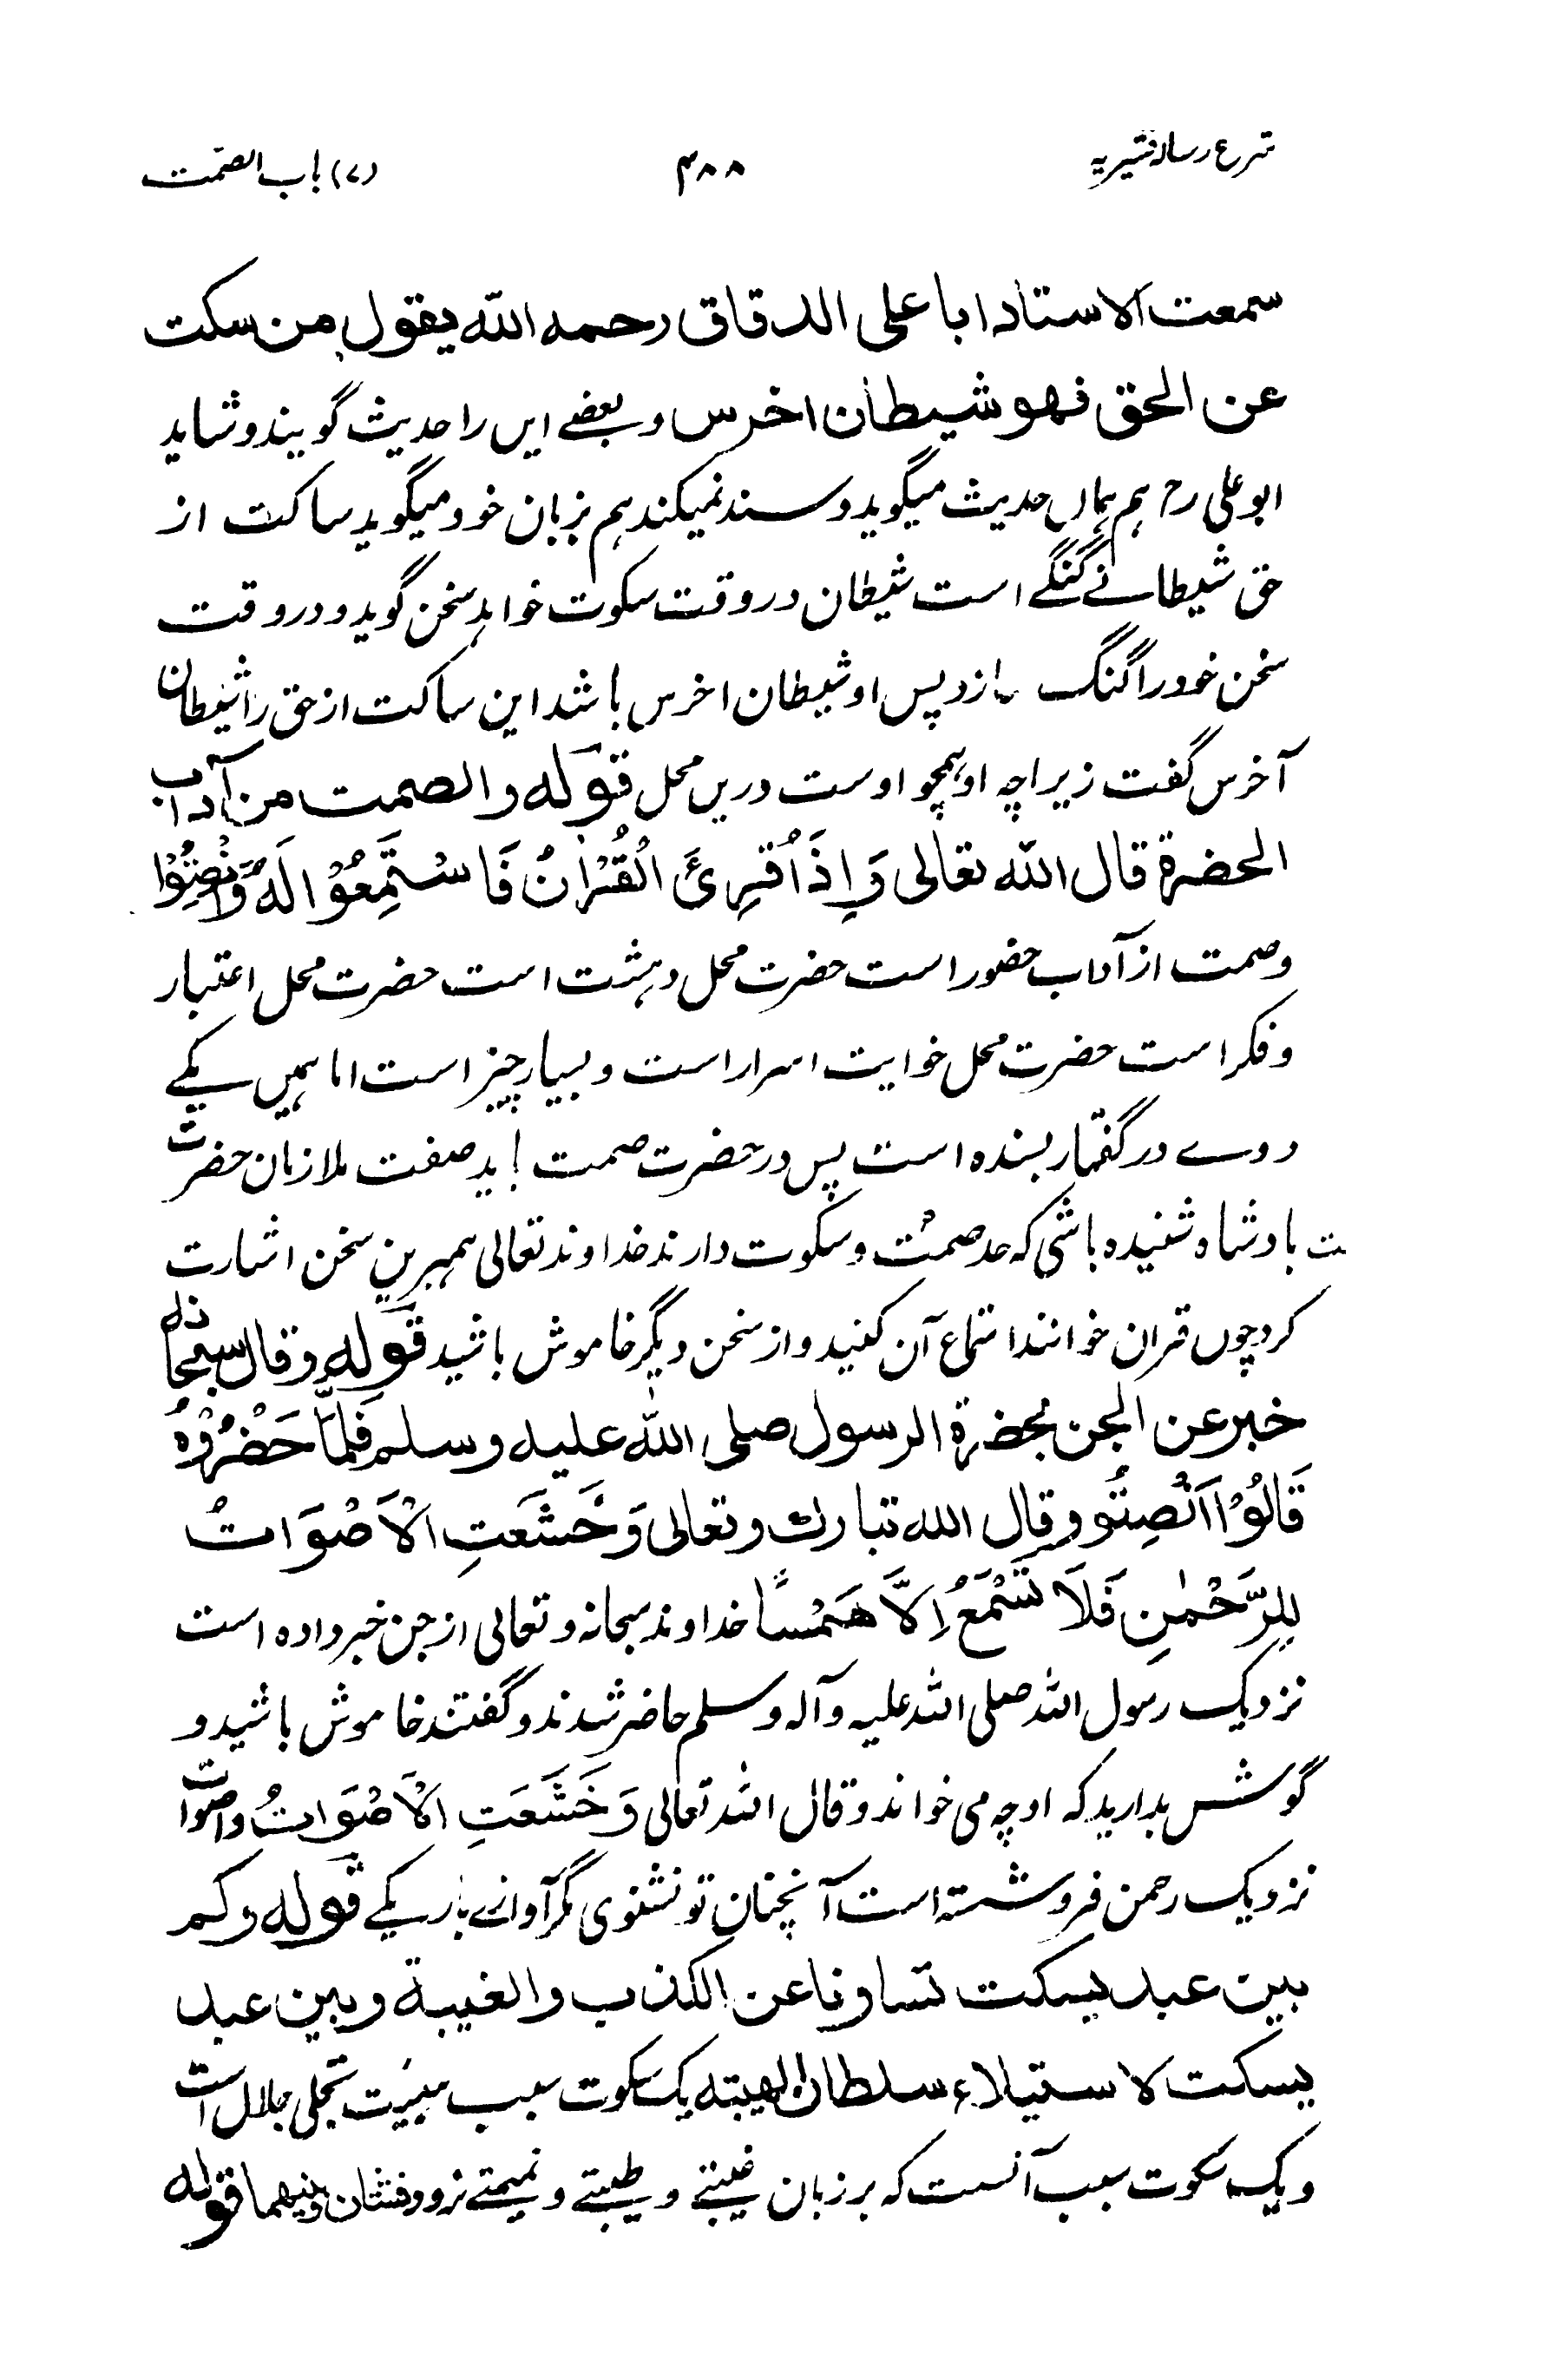 شرح رسالہ قشیریہ ۴۸۸ (۷) باب الصّمت
سمعت الاستاد ابا علی الدقاق رحمه الله یقول من سکت
عن الحق فهو شیطان اخرس و بعضے ایں را حدیث گویند و شاید
ابو علی رح ہم ہماں حدیث میگوید و سند نمیکند ہم بزبان خود میگوید ساکت از
حق شیطانے گنگے است شیطان در وقت سکوت خواہد سخن گوید و در وقت
سخن خود را گنگ سازد پس او شیطان اخرس باشد این ساکت از حق را شیطان
آخرس گفت زیراچہ او ہمچو اوست دریں محل قوله والصمت من آداب
الحضرة قال الله تعالى وَاِذَا قُرِئَ الْقُرْاٰنُ فَاسْتَمِعُوْا لَهٗ وَاَنْصِتُوْا
وصمت از آداب حضور است حضرت محل دہشت است حضرت محل اعتبار
و فکر است حضرت محل خوایت اسرار است و بسیار چیز است اما ہمیں یکے
دوے در گفتار بسندہ است پس در حضرت صمت باید صفت ملازمان حضرت
ست بادشاہ شنیدہ باشی کہ حد صمت و سکوت دارند خداوند تعالی ہمبرین سخن اشارت
کرد چوں قران خوانند استماع آن کنید و از سخن دیگر خاموش باشید قوله وقال سبحانه
خبر عن الجن بحضرة الرسول صلى الله عليه وسلم فَلَمَّا حَضَرُوْهُ
قَالُوْا اَنْصِتُو وقال الله تبارك وتعالى وَخَشَعَتِ الْاَصْوَاتُ
لِلرَّحْمٰنِ فَلَا تَسْمَعُ اِلَّا هَمْسًا خداوند سبحانہ و تعالی از جن خبر دادہ است
نزدیک رسول اللہ صلی اللہ علیہ وآلہ وسلم حاضر شدند و گفتند خاموش باشید و
گوش بدارید کہ او چہ می خواند و قال اللہ تعالی وَخَشَعَتِ الْاَصْوَاتُ و اصوات
نزدیک رحمن فروشتہ است آنچنان تو نشنوی مگر آوازے باریکے قوله وكم
بين عبد يسكت تصاونا عن الكذب والغيبة وبين عبد
يسكت لاستيلاء سلطان الهيبته یک سکوت سبب ہیبت تجلی جلال است
و یک سکوت سبب آنست کہ بر زبان غیبتے و طیبتے و نمیمتے نرود فشتان بینهما قوله